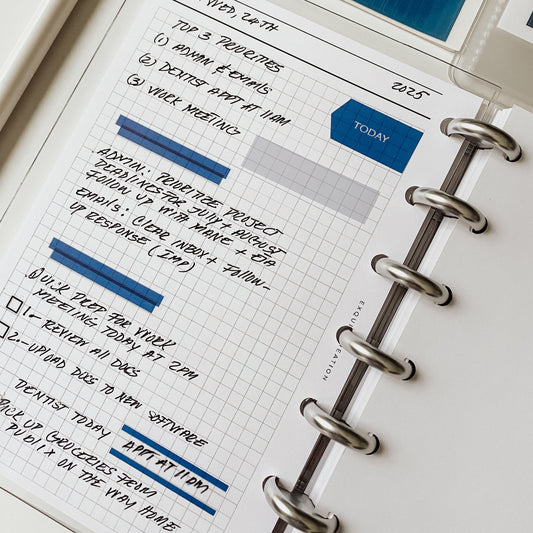 WED, 24TH
2025
TOP 3 PRIORITIES
(1) ADMIN & EMAILS
(2) DENTIST APPT AT 11AM
(3) WORK MEETING
TODAY
. ADMIN: PRIORITIZE PROJECT
DEADLINES FOR JULY + AUGUST
FOLLOW UP WITH + EVA
EMAILS: CLEAR INBOX + FOLLOW-
UP RESPONSE (IMP)
. QUICK PREP FOR WORK
MEETING TODAY AT 2PM
1.- REVIEW ALL DOCS
2.- UPLOAD DOCS TO NEW SOFTWARE
DENTIST TODAY
APPT AT 11 AM
PICK UP GROCERIES FROM
PUBLIX ON THE WAY HOME